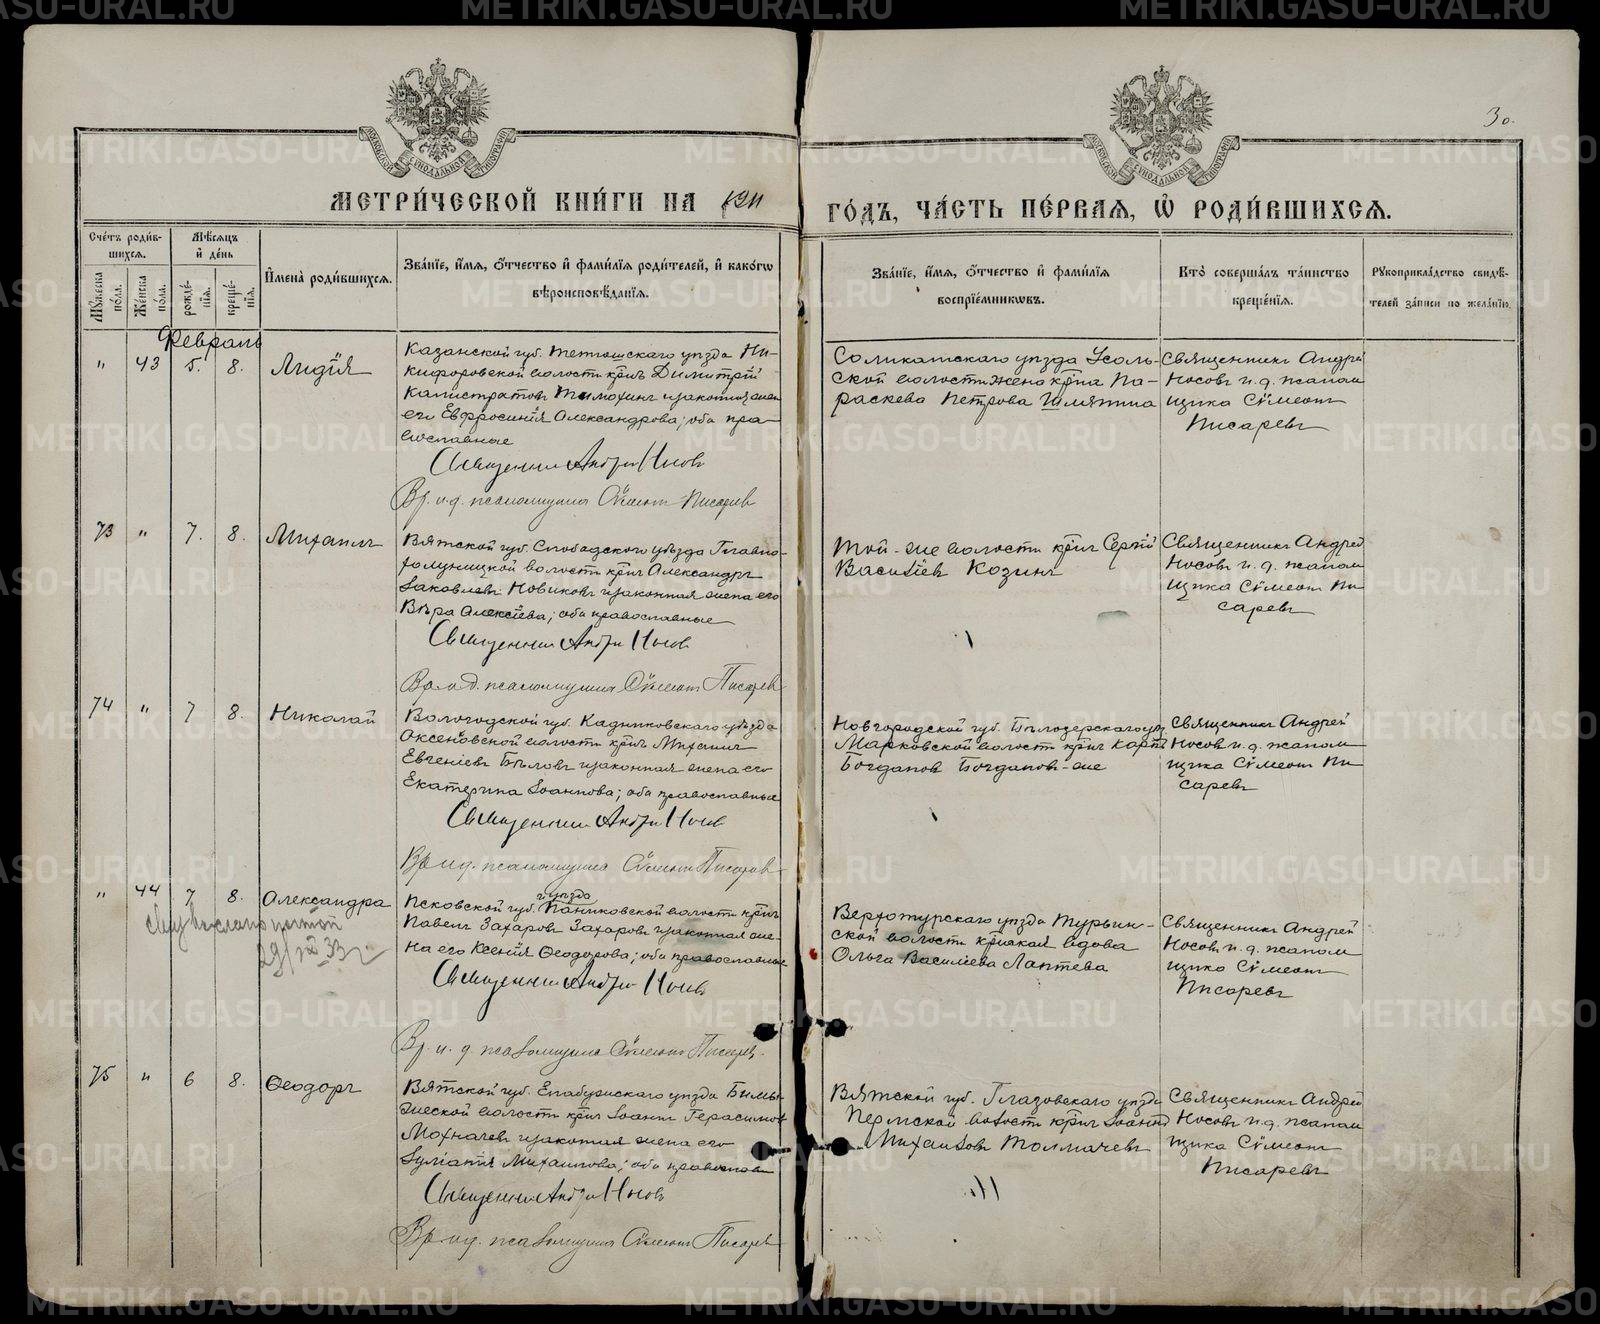 METRIKI.GASO-URAL.RU
30.
МОСКОВСКОЙ СѴНОДАЛЬНОЙ ТИПОГРАФІИ
МОСКОВСКОЙ СѴНОДАЛЬНОЙ ТИПОГРАФІИ
МЕТРИ́ЧЕСКОЙ КНИ́ГИ НА 1911
ГО́ДЪ, ЧА́СТЬ ПЕ́РВАѦ, Ѡ РОДИ́ВШИХСѦ.
Сче́тъ роди́в-
шихсѧ.
Мꙋ́жеска по́ла.
Же́нска по́ла.
Мѣ́сѧцъ
и҆ де́нь
рожде́нїѧ.
креще́нїѧ.
И҆мена̀ роди́вшихсѧ.
Зва́нїе, и҆́мѧ, ѻ҆́тчество и҆ фами́лїѧ роди́телей, и҆ како́гѡ
вѣроисповѣ́данїѧ.
Зва́нїе, и҆́мѧ, ѻ҆́тчество и҆ фами́лїѧ
воспрїе́мникѡвъ.
Кто̀ соверша́лъ та́инство
креще́нїѧ.
Рꙋкоприкла́дство свидѣ́-
телей за́писи по жела́нїю.
Февраль
" 43 5. 8. Лидія
Казанской губ. Тетюшскаго уѣзда Ни-
кифоровской волости кр̃нъ Димитрій
Капистратовъ Тимохинъ и законная жена
его Евфросинія Александрова; оба пра-
вославные
Священникъ Андрей Носовъ
Вр. и. д. псаломщика Сѵмеонъ Писаревъ
Соликамскаго уѣзда Усоль-
ской волости жена кр̃на Па-
раскева Петрова Шляпина
Священникъ Андрей
Носовъ и. д. псалом
щика Сѵмеонъ
Писаревъ
73 " 7. 8. Михаилъ
Вятской губ. Слободского уѣзда Главно-
холуницкой волости кр̃нъ Александръ
Іаковлевъ Новиковъ и законная жена его
Вѣра Алексіева; оба православные
Священникъ Андрей Носовъ
Вр. и. д. псаломщика Сѵмеонъ Писаревъ
Той-же волости кр̃нъ Сергій
Васильевъ Козинъ
Священникъ Андрей
Носовъ и. д. псалом
щика Сѵмеонъ Пи
саревъ
74 " 7 8. Николай
Вологодской губ. Кадниковскаго уѣзда
Оксеновской волости кр̃нъ Михаилъ
Евгеніевъ Бѣловъ и законная жена его
Екатерина Іоаннова; оба православные
Священникъ Андрей Носовъ
Вр. и. д. псаломщика Сѵмеонъ Писаревъ
Новгородской губ. Бѣлозерскаго уѣз
Марковской волости кр̃нъ Карпъ
Богдановъ Богдановъ-же
Священникъ Андрей
Носовъ и. д. псалом
щика Сѵмеонъ Пи
саревъ
" 44 7 8. Александра
и уѣзда
Псковской губ. Паниковской волости кр̃нъ
Павелъ Захаровъ Захаровъ и законная же-
на его Ксенія Ѳеодорова; оба православные
Священникъ Андрей Носовъ
Вр. и. д. псаломщика Сѵмеонъ Писаревъ.
Верхотурскаго уѣзда Турьин-
ской волости кр̃ская вдова
Ольга Васильева Лаптева
Священникъ Андрей
Носовъ и. д. псалом
щика Сѵмеонъ
Писаревъ
75 " 6 8. Ѳеодоръ
Вятской губ. Елабужскаго уѣзда Бимы-
жеской волости кр̃нъ Іоаннъ Герасимовъ
Мохначевъ и законная жена его
Іуліанія Михаилова; оба православн
Священникъ Андрей Носовъ
Вр. и. д. псаломщика Сѵмеонъ Писаревъ
Вятской губ. Глазовскаго уѣзда
Пермской волости кр̃нъ Іоаннъ
Михаиловъ Толмачевъ
Священникъ Андрей
Носовъ и. д. псалом
щика Сѵмеонъ
Писаревъ